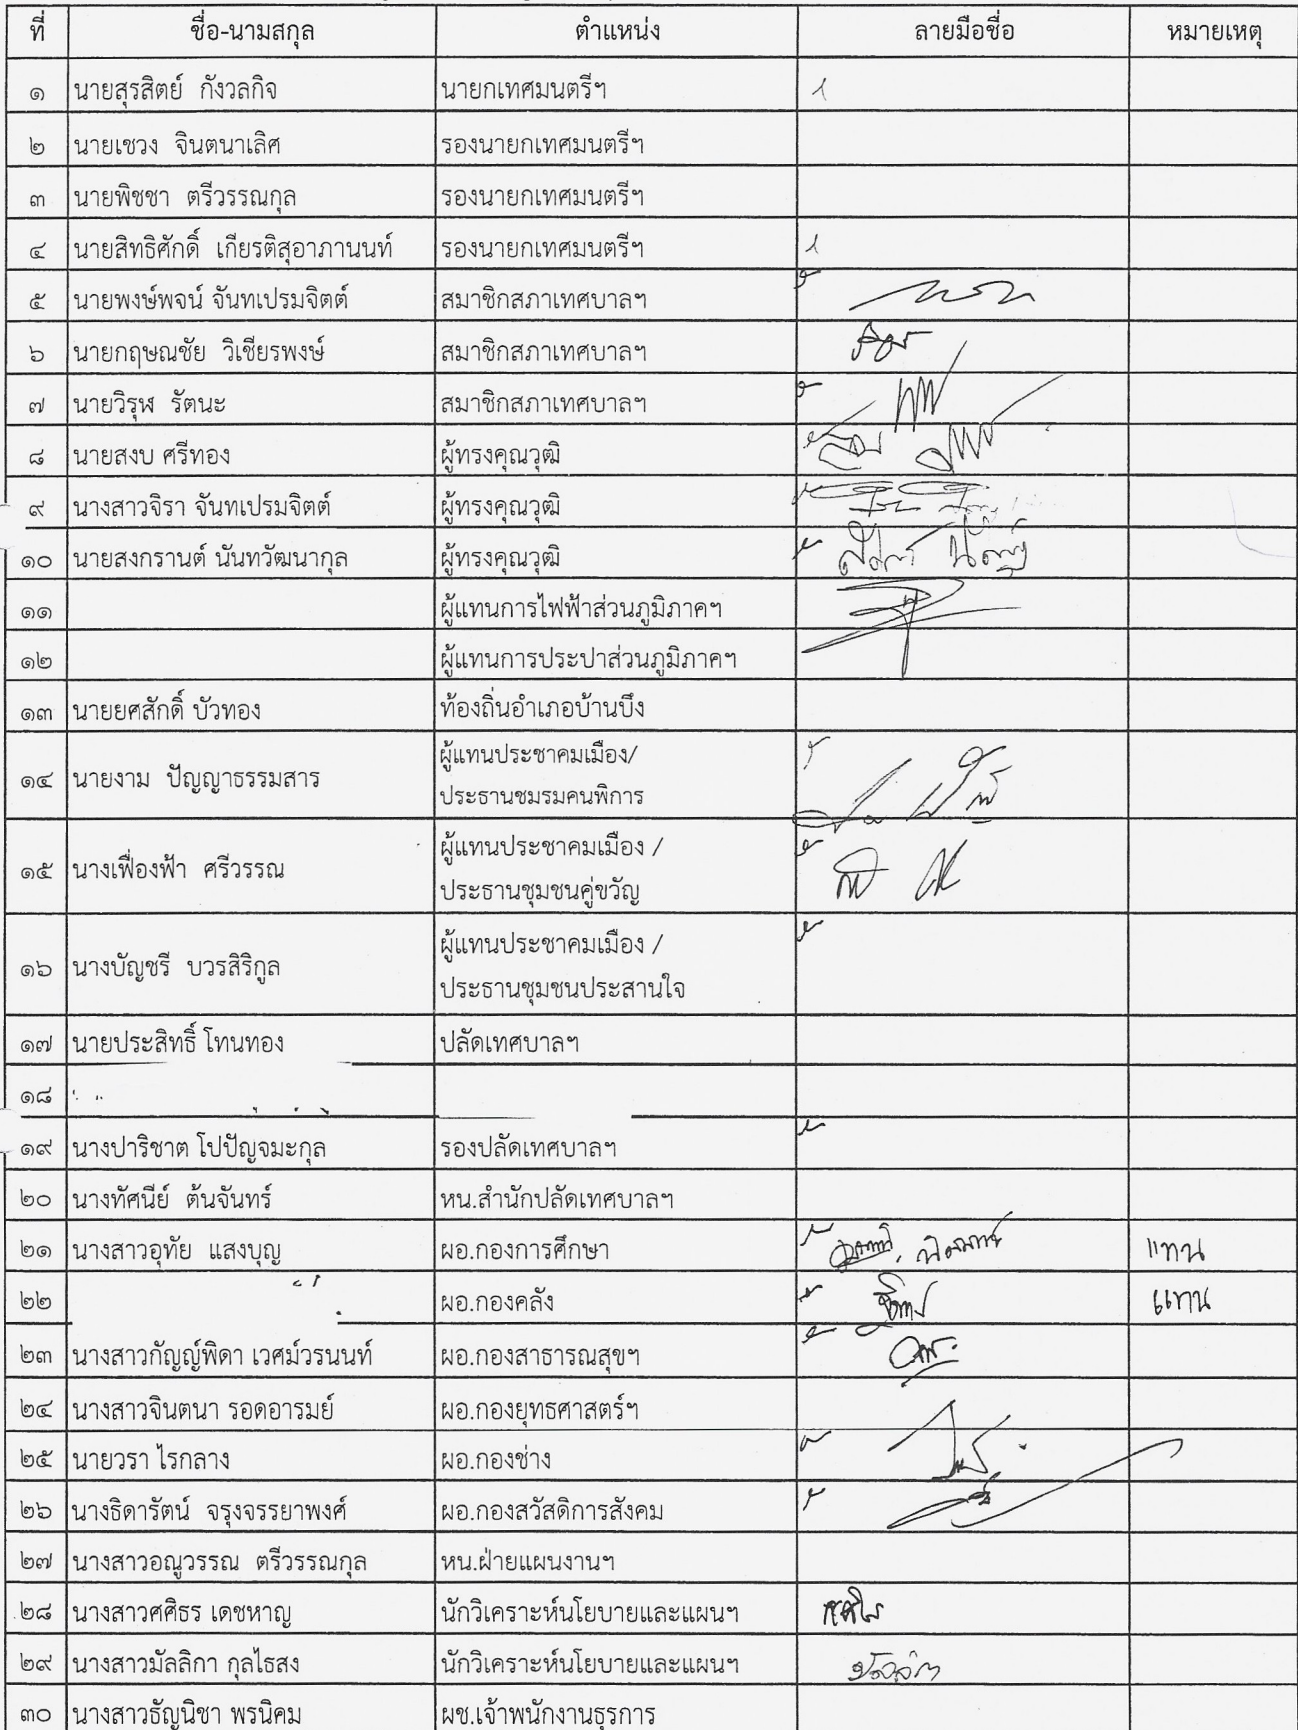 ที่ ชื่อ-นามสกุล ตำแหน่ง ลายมือชื่อ หมายเหตุ
๑ นายสุรสิตย์ กังวลกิจ นายกเทศมนตรีฯ
๒ นายเชวง จินตนาเลิศ รองนายกเทศมนตรีฯ
๓ นายพิชชา ตรีวรรณกุล รองนายกเทศมนตรีฯ
๔ นายสิทธิศักดิ์ เกียรติสุอาภานนท์ รองนายกเทศมนตรีฯ
๕ นายพงษ์พจน์ จันทเปรมจิตต์ สมาชิกสภาเทศบาลฯ
๖ นายกฤษณชัย วิเชียรพงษ์ สมาชิกสภาเทศบาลฯ
๗ นายวิรุฬ รัตนะ สมาชิกสภาเทศบาลฯ
๘ นายสงบ ศรีทอง ผู้ทรงคุณวุฒิ
๙ นางสาวจิรา จันทเปรมจิตต์ ผู้ทรงคุณวุฒิ
๑๐ นายสงกรานต์ นันทวัฒนากุล ผู้ทรงคุณวุฒิ
๑๑ ผู้แทนการไฟฟ้าส่วนภูมิภาคฯ
๑๒ ผู้แทนการประปาส่วนภูมิภาคฯ
๑๓ นายยศสักดิ์ บัวทอง ท้องถิ่นอำเภอบ้านบึง
๑๔ นายงาม ปัญญาธรรมสาร ผู้แทนประชาคมเมือง/
ประธานชมรมคนพิการ
๑๕ นางเฟื่องฟ้า ศรีวรรณ ผู้แทนประชาคมเมือง /
ประธานชุมชนคู่ขวัญ
๑๖ นางบัญชรี บวรสิริกูล ผู้แทนประชาคมเมือง /
ประธานชุมชนประสานใจ
๑๗ นายประสิทธิ์ โทนทอง ปลัดเทศบาลฯ
๑๘
๑๙ นางปาริชาต โปปัญจมะกุล รองปลัดเทศบาลฯ
๒๐ นางทัศนีย์ ต้นจันทร์ หน.สำนักปลัดเทศบาลฯ
๒๑ นางสาวอุทัย แสงบุญ ผอ.กองการศึกษา แทน
๒๒ ผอ.กองคลัง แทน
๒๓ นางสาวกัญญ์พิดา เวศม์วรนนท์ ผอ.กองสาธารณสุขฯ
๒๔ นางสาวจินตนา รอดอารมย์ ผอ.กองยุทธศาสตร์ฯ
๒๕ นายวรา ไรกลาง ผอ.กองช่าง
๒๖ นางธิดารัตน์ จรุงจรรยาพงศ์ ผอ.กองสวัสดิการสังคม
๒๗ นางสาวอณูวรรณ ตรีวรรณกุล หน.ฝ่ายแผนงานฯ
๒๘ นางสาวศศิธร เดชหาญ นักวิเคราะห์นโยบายและแผนฯ
๒๙ นางสาวมัลลิกา กุลไธสง นักวิเคราะห์นโยบายและแผนฯ
๓๐ นางสาวธัญนิชา พรนิคม ผช.เจ้าพนักงานธุรการ